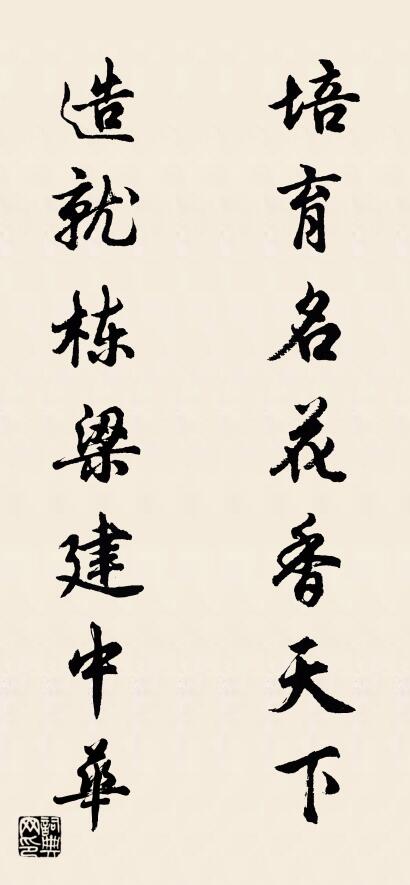 培育名花香天下
造就栋梁建中华
詞典网印